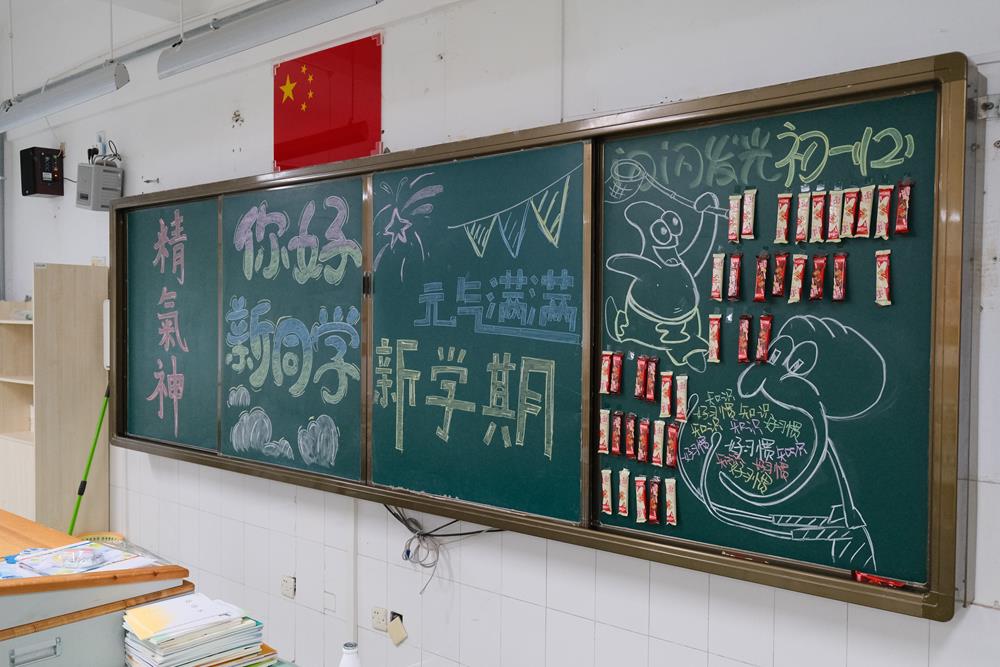 精氣神
你好
新同学
元气满满
新学期
闪闪发光 初一(2)
知识
好习惯 知识
知识 知识 好习惯
好习惯 好习惯 知识
好习惯 知识 好习惯
好习惯